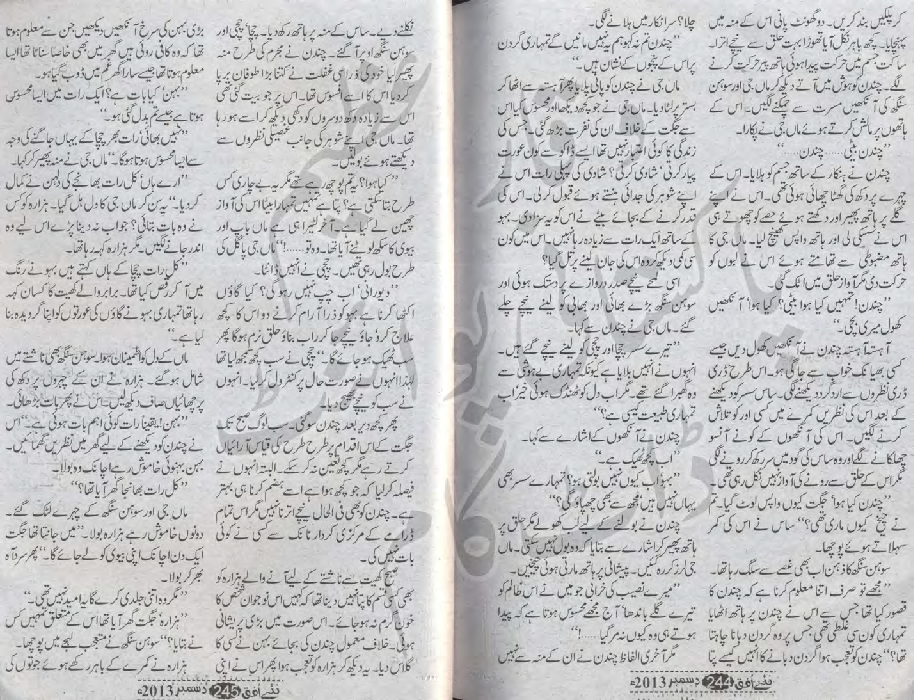 کر پلکیں بند کریں۔ دو گھونٹ پانی اس کے منہ میں
پہنچایا۔ کچھ باہر نکل آیا تھوڑا بہت حلق سے نیچے اترا۔
ساکت جسم میں حرکت پیدا ہوئی ہاتھ پیر حرکت کرنے
لگے۔ چندن کو ہوش میں آتے دیکھ کر ماں جی اور سوہن
سنگھ کی آنکھیں مسرت سے چمکنے لگیں۔ اس کے
ہاتھوں پر مالش کرتے ہوئے ماں جی نے پکارا۔
”چندن بیٹی..... چندن.....“
چندن نے پکار کے ساتھ جسم کو ہلایا۔ اس کے
چہرے پر دکھ کی گھٹا چھائی ہوئی تھی۔ اس نے اپنے
گلے پر ہاتھ پھیرا اور دکھتے ہوئے حصے کو چھوتے ہی
اس نے سسکی لی اور ہاتھ واپس کھینچ لیا۔ ماں جی کا
ہاتھ مضبوطی سے تھامتے ہوئے اس نے لبوں کو
حرکت دی مگر آواز حلق میں اٹک گئی۔
”چندن! تمہیں کیا ہوا بیٹی؟ کیا ہوا؟ آنکھیں
کھول میری بچی۔“
آہستہ آہستہ چندن نے آنکھیں کھول دیں جیسے
کسی بھیانک خواب سے جاگی ہو۔ اس طرح ڈری
ڈری نظروں سے اردگرد دیکھنے لگی۔ ساس سسر کو دیکھنے
کے بعد اس کی نظریں کمرے میں کسی اور کو تلاش
کرنے لگیں۔ اس کی آنکھوں کے کونے آنسو
چھلکانے لگے اور وہ ساس کی گود میں سر رکھ کر رونے لگی
مگر اس کے حلق سے رونے کی آواز نہیں نکل رہی تھی۔
”چندن کیا ہوا؟ جگت کیوں واپس لوٹ گیا۔ تم
نے چیخ کیوں ماری تھی؟“ ساس نے اس کی کمر
سہلاتے ہوئے پوچھا۔
سوہن سنگھ کا ذہن اب بھی غصے سے سنگ رہا تھا۔
”مجھے تو صرف اتنا معلوم کرنا ہے کہ چندن کا
قصور کیا تھا؟ جس سے اس نے چندن پر ہاتھ اٹھایا
تمہاری کون سی غلطی تھی جس پر وہ گردن دبانا چاہتا
تھا؟“ چندن کو تعجب ہوا گردن دبانے کا انہیں کیسے پتا
چلا؟ سر انکار میں ہلانے لگی۔
”چندن تم نہ کہو ہم یہ نہیں مانیں گے تمہاری گردن
پر اس کے پنجوں کے نشان ہیں۔“
ماں جی نے چندن کو پانی پلایا پھر آہستہ سے اٹھا کر
بستر پر لٹا دیا۔ ماں جی نے جو کچھ دیکھا اور محسوس کیا اس
سے جگت کے خلاف ان کی نفرت بڑھ گئی۔ جس کی
زندگی کا کوئی اعتبار نہیں تھا اسے ڈاکو سے کون عورت
پیار کرتی؟ شادی کرتی؟ شادی کی پہلی رات اس نے
اپنے شوہر کی جدائی ہنستے ہوئے قبول کر لی۔ اس کی
قدر کرنے کے بجائے بیٹے نے اس کو یہ سزا دی۔ بہو
کے ساتھ ایک رات سے زیادہ رہا نہیں۔ اس میں کون
سی کمی دیکھ کر وہ اس کی جان لینے پر تل گیا؟
اسی لمحے نیچے صدر دروازے پر دستک ہوئی اور
سوہن سنگھ بڑے بھائی اور بھابی کو لینے نیچے چلے
گئے۔ ماں جی نے چندن سے کہا۔
”تیرے سسر چچا اور چچی کو لینے نیچے گئے ہیں۔
انہوں نے انہیں بلایا ہے کیونکہ تمہاری بے ہوشی سے
وہ گھبرا گئے تھے۔ مگر اب دل کو ٹھنڈک ہوئی خیر اب
تمہاری طبیعت کیسی ہے؟“
چندن نے آنکھوں کے اشارے سے کہا۔
”اب یہ ٹھیک ہے۔“
”بہو! اب کیوں نہیں بولتی ہو؟ تمہارے سسر بھی
یہاں نہیں ہیں مجھ سے بھی چھپاؤ گی؟“
چندن نے بولنے کے لیے لب کھولے مگر حلق پر
ہاتھ پھیر کر اشارے سے بتایا کہ وہ بول نہیں سکتی۔ ماں
جی لرز کر رہ گئیں۔ پیشانی پر ہاتھ مارتی ہوئی چیخیں۔
”میرے نصیب کی خرابی جو میں نے اس ظالم کو
تیرے گلے باندھا۔ آج مجھے محسوس ہوتا ہے کہ پیدا
ہوتے ہی وہ کیوں نہ مر گیا.....!“
مگر آخری الفاظ چندن نے ان کے منہ سے نہیں
نئے افق 244 دسمبر 2013ء
نکلنے دیے۔ ساس کے منہ پر ہاتھ رکھ دیا۔ چچا چچی اور
سوہن سنگھ اوپر آگئے۔ چندن نے مجرم کی طرح منہ
پھیر لیا خود کی ذرا سی غفلت نے کتنا بڑا طوفان برپا
کر دیا اس کا اسے افسوس تھا۔ اس پر جو بیت گئی تھی
اس سے زیادہ وہ دوسروں کو دکھی دیکھ کر اسے ہو رہا
تھا۔ ماں جی اپنے شوہر کی جانب غصیلی نظروں سے
دیکھتے ہوئے بولیں۔
”کیا ہوا؟ یہ تم پوچھ رہے تھے مگر یہ بے چاری کس
طرح بتا سکتی ہے؟ پتا ہے تمہیں تمہارا بیٹا اس کی آواز
چھین لے گیا ہے۔ آخر لٹیرا ہی ہے ماں باپ اور
بیوی کا سکھ لوٹنے آیا تھا۔ وہ تو.....!“ ماں جی پاگل کی
طرح بول رہی تھیں۔ چچی نے انہیں ڈانٹا۔
”دیورانی! اب چپ نہیں رہو گی؟ کیا گاؤں
اکٹھا کرنا ہے بہو کو ذرا آرام کرنے دو اس کا کچھ
علاج کرو جاؤ نیچے جا کر راب بناؤ حلق نرم ہوگا پھر
سب ٹھیک ہو جائے گا۔“ چچی نے سب کچھ سمجھ لیا تھا
لہٰذا انہوں نے صورت حال پر کنٹرول کر لیا۔ انہوں
نے سب کو نیچے بھیج دیا۔
پھر کچھ دیر بعد چندن سو گئی۔ سب لوگ صبح تک
جگت کے اس اقدام پر طرح طرح کی قیاس آرائیاں
کرتے رہے مگر کچھ تعین نہ کر سکے۔ البتہ انہوں نے
فیصلہ کر لیا کہ جو کچھ ہوا ہے اسے ہضم کرنا ہی بہتر
ہے۔ چندن کو بھی فی الحال نیچے اترنا نہیں مگر اس تمام
ڈرامے کے مرکزی کردار نانک سے کسی نے کوئی
بات نہیں کی۔
صبح کھیت سے ناشتے کے لیے آنے والے ہزارہ کو
بھی کسی قسم کا پتا نہیں دینا تھا کہ کہیں اس نوجوان شخص کا
خون گرم نہ ہو جائے۔ اس صورت میں بڑی پریشانی
ہوگی۔ خلاف معمول چندن کی بجائے بہن نے کسی کا
گلاس دیا۔ یہ دیکھ کر ہزارہ کو تعجب ہوا پھر اس نے اپنی
بڑی بہن کی سرخ آنکھیں دیکھیں جن سے معلوم ہوتا
تھا کہ وہ کافی روئی ہیں گھر میں بھی خاصا سناٹا تھا ایسا
معلوم ہوتا تھا جیسے سارا گھر غم میں ڈوب گیا ہو۔
”بہن! کیا بات ہے؟ ایک رات میں ایسا محسوس
ہوتا ہے جیسے تم بدل گئی ہو۔“
”نہیں بھائی رات بھر چچا کے یہاں جاگنے کی وجہ
سے ایسا محسوس ہوتا ہوگا۔“ ماں جی نے منہ پھیر کر کہا۔
”ارے ہاں! کل رات بھانجے کی دلہن نے کمال
کر دیا۔“ یہ سن کر ماں جی کا دل ہل گیا۔ ہزارہ کو کس
نے وہ بات بتائی؟ جواب نہ دینا پڑے اس لیے وہ
اندر جانے لگیں۔ مگر ہزارہ کہہ رہا تھا۔
”کل رات چچا کے ہاں کہتے ہیں بہو نے رنگ
میں آ کر رقص کیا تھا۔ برابر والے کھیت کا کسان کہہ
رہا تھا تمہاری بہو نے گاؤں کی عورتوں کو اپنا گرویدہ بنا
لیا ہے۔“
ماں کے دل کو اطمینان ہوا۔ سوہن سنگھ بھی ناشتے میں
شامل ہو گئے۔ ہزارہ نے ان کے چہروں پر دکھ کی
پرچھائیاں صاف دیکھ لیں۔ اس نے پھر بات بڑھائی۔
”بہن! یقیناً رات کوئی اہم بات ہوئی ہے۔“ اس
نے چندن کو دیکھنے کے لیے گھر میں نظریں گھمائیں۔
بہن بہنوئی خاموش رہے اچانک وہ بولا۔
”کل رات بھانجا گھر آیا تھا؟“
ماں جی اور سوہن سنگھ کے چہرے لٹک گئے۔
دونوں خاموش رہے ہزارہ بولا۔ ”میں جانتا تھا جگت
ایک دن اچانک اپنی بیوی کو لے جائے گا۔“ پھر سرد آہ
بھر کر بولا۔
”مگر وہ اتنی جلدی کرے گا یہ امید نہیں تھی۔“
”ہزارہ! جگت گھر آیا تھا اس کے متعلق تمہیں کس
نے بتایا؟“ سوہن سنگھ نے متعجب لہجے میں پوچھا۔
ہزارہ نے کمرے کے باہر رکھے ہوئے جوتوں کی
نئے افق 245 دسمبر 2013ء